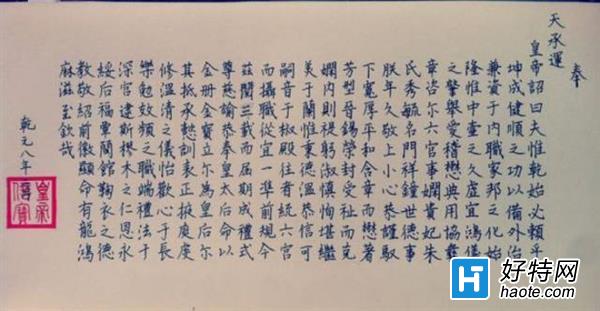 奉
天承運
皇帝詔曰夫惟乾始必賴乎
坤成健順之功以備外治
兼資于內職家邦之化始
隆惟中壼之久虛宜鴻儀
之肇舉爰稽懋典用協彝
章咨尔六宮事嫻貴妃朱
氏秀毓名門祥鍾世德事
朕年久敬上小心恭謹馭
下寬厚平和含章而懋著
芳型晉錫榮封受祉而克
嫻內則禔躬淑慎恂堪繼
美于蘭惟秉德溫恭信可
嗣音于椒殿往者統六宮
而攝職從宜一準前規今
茲閱三載而屆期成禮式
尊慈諭恭奉皇太后命以
金册金寶立尔為皇后尔
其抵承懃訓表正掖庭虔
修溫清之儀怡歡心于長
樂勉效頻之職端禮法于
深宮逮斯樛木之仁恩永
綏后福覃蘭館鞠衣之德
教敬紹前徽顯命有龍鴻
麻滋至欽哉
乾元八年
皇帝
好特网
haote.com